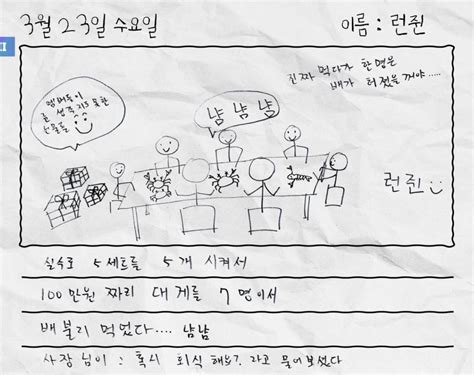 3월 23일 수요일
이름 : 런쥔
진짜 먹다가 한명은
배가 터졌을꺼야.....
멤버들이
준 생각지도 못한
선물들
냠냠냠
런쥔
실수로 5세트를 5개 시켜서
100만원 짜리 대게를 7명이서
배불리 먹었다.... 냠냠
사장님이 : 혹시 회식 해요? 라고 물어보셨다